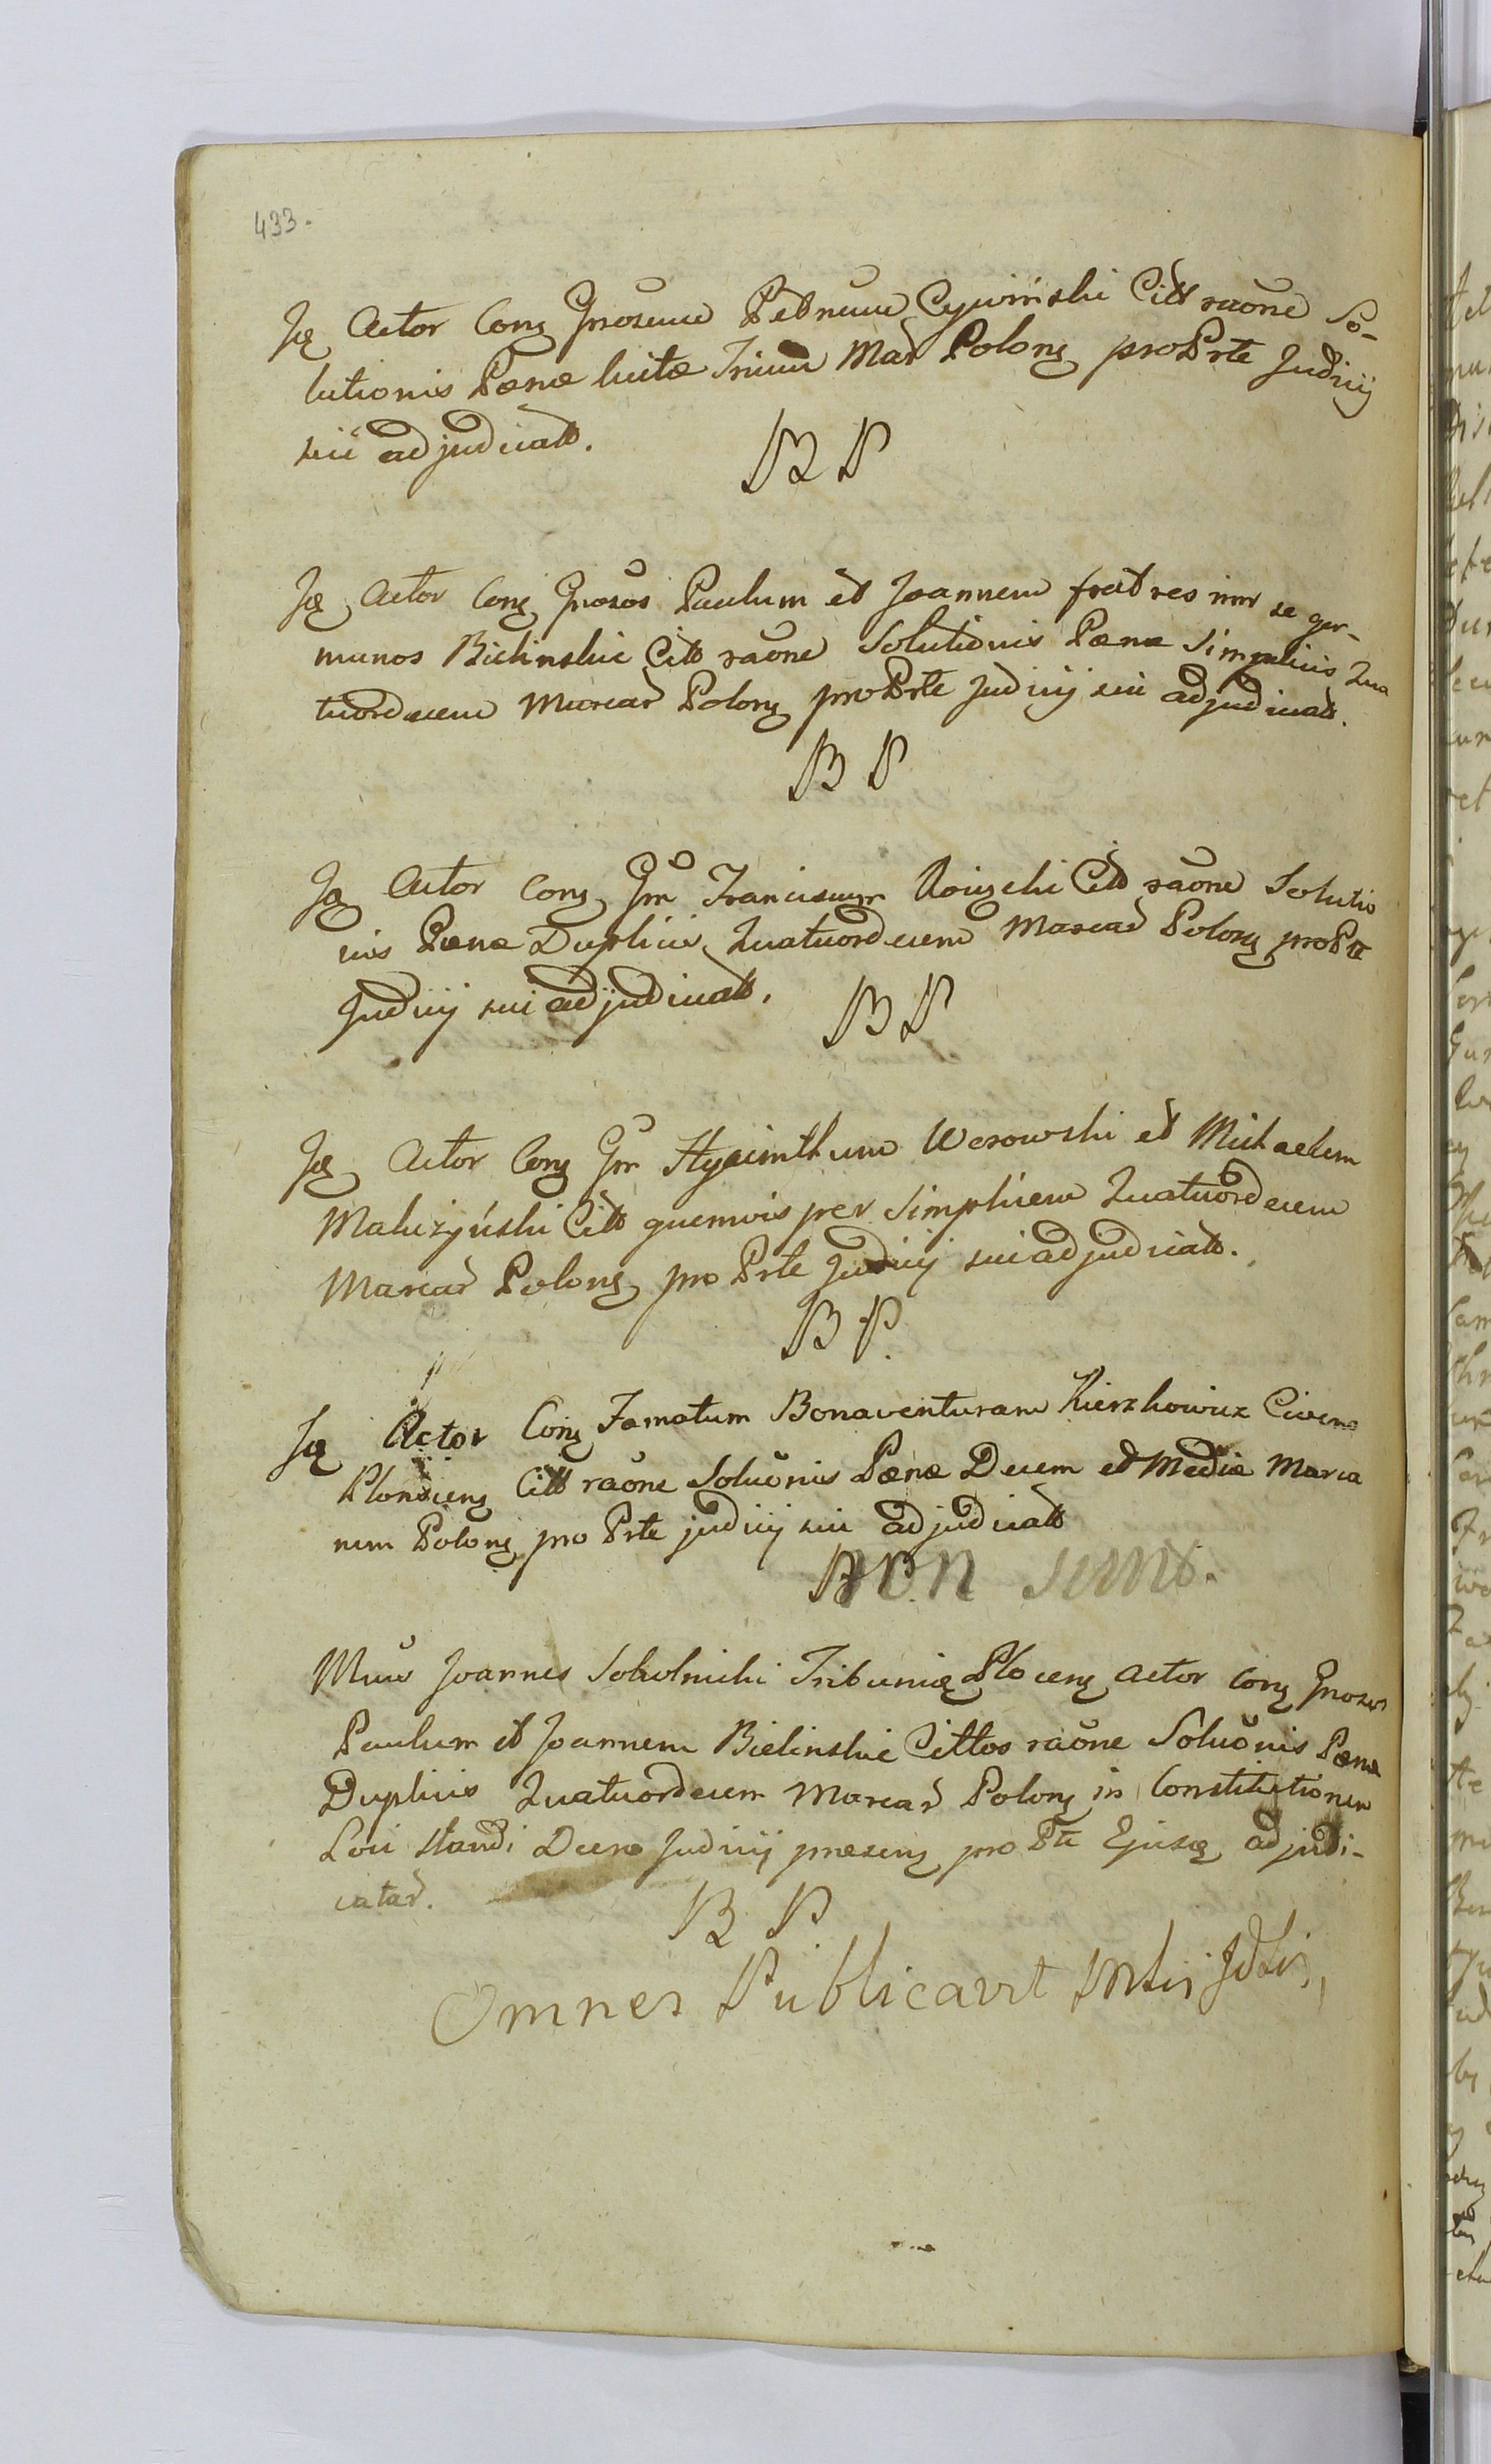 433.
Actor Conq Gnosum Petrum Cywinski Citt raone So-
lutionis Pænæ luitæ Trium Mar Polonq pro Prte Judiij
sui adjudicatt.
B P
Actor Conq Gnosos Paulum et Joannem fratres inr se ger-
manos Bielinskie Citt raone Solutionis Pænæ Simplicis Qua
tuordecem Marcar Polonq pro Prte Judiij sui adjudicatt.
B P
Actor Conq Gnr Franciscum Citt raone Solutio
nis Pænæ Duplicis Quatuordecem Marcar Polonq pro Prte
Judiij sui adjudicatt.
B P
Actor Conq Gnr Hyacinthum Werowski et Michaelem
Maluzyński Citt quemvis per Simplicem Quatuordecem
Marcar Polonq pro Prte Judiij sui adjudicatt.
B P.
Actor Conq Famatum Bonaventuram Kierzkowicz Civem
Plonscenq Citt raone Soluonis Pænæ Decem et Mediæ Marca
rum Polonq pro Prte judiij sui adjudicatt
non sunt.
Joannes Sokolnicki Tribuniq Plocenq Actor Conq Gnosos
Paulum et Joannem Bielinskie Cittos raone Soluonis Pænæ
Duplicis Quatuordecem Marcar Polonq in Constitutionem
Loci standi Decro Judiij præsenq pro Prte Ejusq adjudi-
catar.
B P
Omnes Publicavit